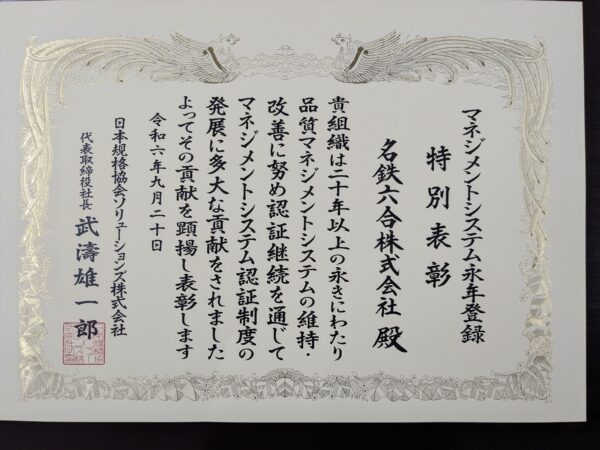 マネジメントシステム永年登録
特別表彰
名鉄六合株式会社 殿
貴組織は二十年以上の永きにわたり
品質マネジメントシステムの維持・
改善に努め認証継続を通じて
マネジメントシステム認証制度の
発展に多大な貢献をされました
よってその貢献を顕揚し表彰します
令和六年九月二十日
日本規格協会ソリューションズ株式会社
代表取締役社長 武濤雄一郎